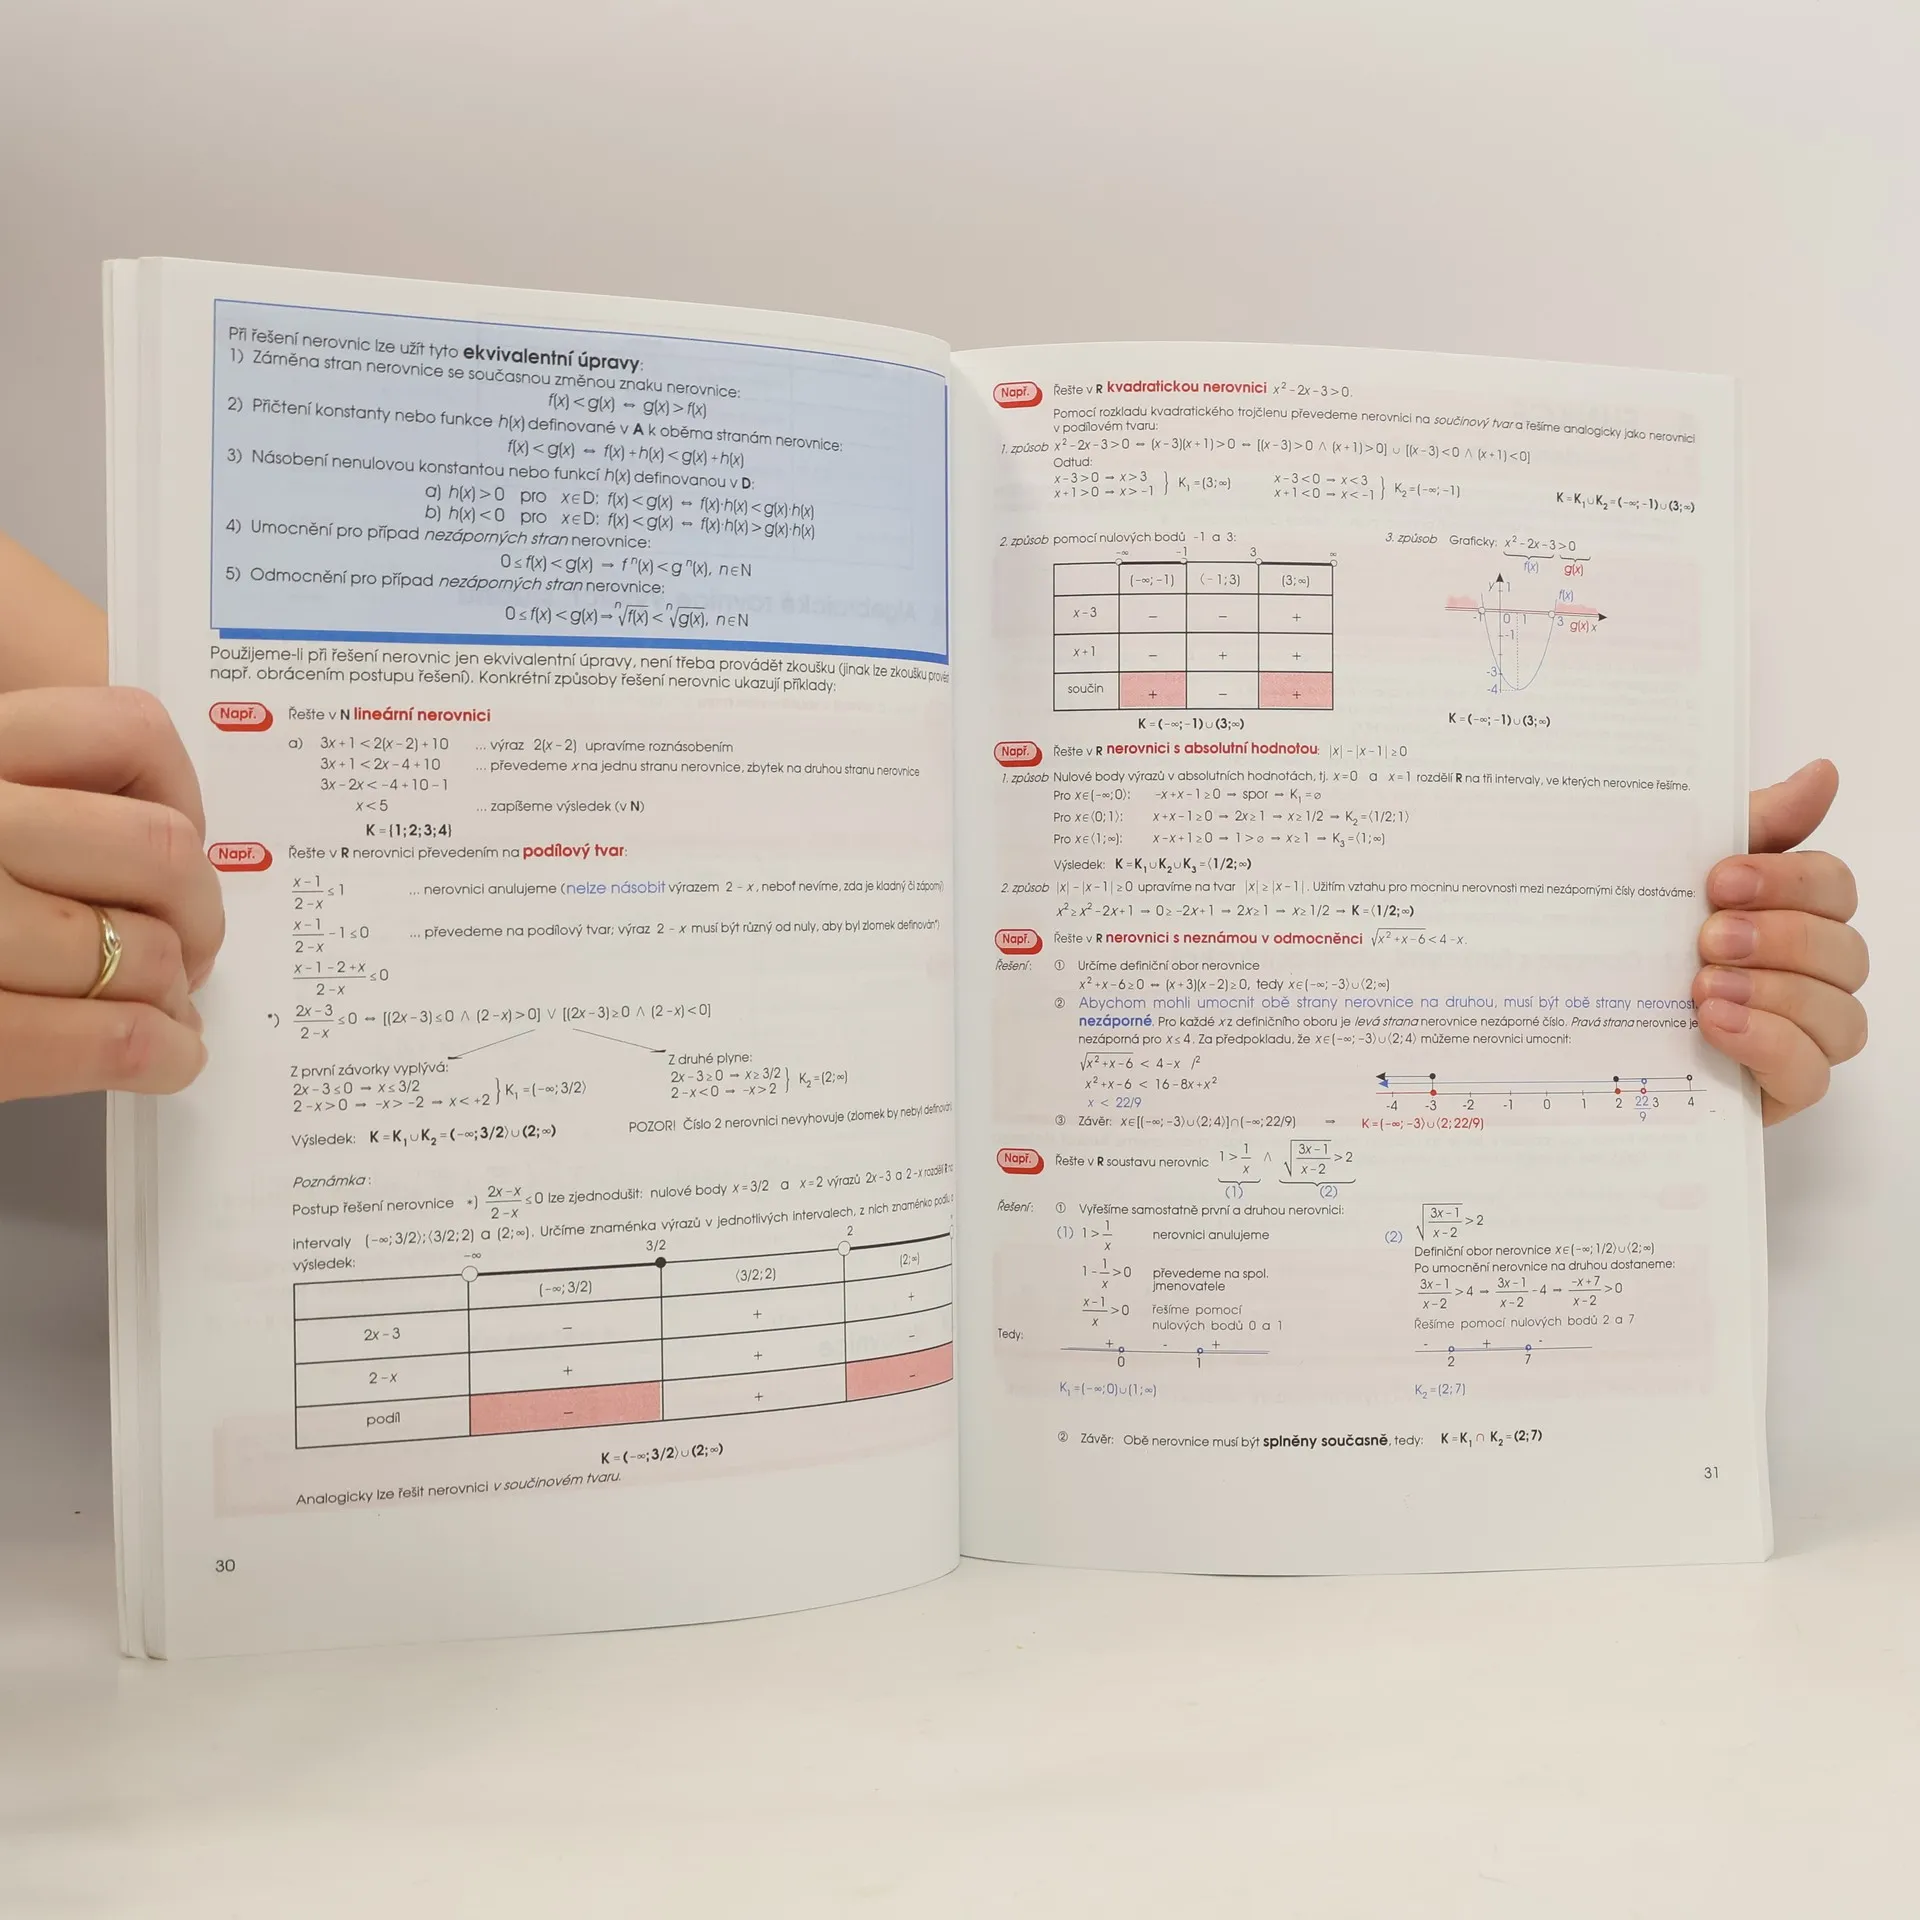 Při řešení nerovnic lze užít tyto ekvivalentní úpravy:
1) Záměna stran nerovnice se současnou změnou znaku nerovnice:
f(x) < g(x) ⇔ g(x) > f(x)
2) Přičtení konstanty nebo funkce h(x) definované v A k oběma stranám nerovnice:
f(x) < g(x) ⇔ f(x) + h(x) < g(x) + h(x)
3) Násobení nenulovou konstantou nebo funkcí h(x) definovanou v D:
a) h(x) > 0 pro x∈D: f(x) < g(x) ⇔ f(x)·h(x) < g(x)·h(x)
b) h(x) < 0 pro x∈D: f(x) < g(x) ⇔ f(x)·h(x) > g(x)·h(x)
4) Umocnění pro případ nezáporných stran nerovnice:
0 ≤ f(x) < g(x) → fⁿ(x) < gⁿ(x), n∈N
5) Odmocnění pro případ nezáporných stran nerovnice:
0 ≤ f(x) < g(x) → ⁿ√f(x) < ⁿ√g(x), n∈N
Použijeme-li při řešení nerovnic jen ekvivalentní úpravy, není třeba provádět zkoušku (jinak lze zkoušku
např. obrácením postupu řešení). Konkrétní způsoby řešení nerovnic ukazují příklady:
Např. Řešte v N lineární nerovnici
a) 3x + 1 < 2(x − 2) + 10 ... výraz 2(x − 2) upravíme roznásobením
3x + 1 < 2x − 4 + 10 ... převedeme x na jednu stranu nerovnice, zbytek na druhou stranu nerovnice
3x − 2x < −4 + 10 − 1
x < 5 ... zapíšeme výsledek (v N)
K = {1; 2; 3; 4}
Např. Řešte v R nerovnici převedením na podílový tvar:
(x − 1)/(2 − x) ≤ 1 ... nerovnici anulujeme (nelze násobit výrazem 2 − x, neboť nevíme, zda je kladný či záporný)
(x − 1)/(2 − x) − 1 ≤ 0 ... převedeme na podílový tvar; výraz 2 − x musí být různý od nuly, aby byl zlomek definován*)
(x − 1 − 2 + x)/(2 − x) ≤ 0
*) (2x − 3)/(2 − x) ≤ 0 ⇔ [(2x − 3) ≤ 0 ∧ (2 − x) > 0] ∨ [(2x − 3) ≥ 0 ∧ (2 − x) < 0]
Z první závorky vyplývá:
2x − 3 ≤ 0 → x ≤ 3/2
2 − x > 0 → −x > −2 → x < +2 } K₁ = (−∞; 3/2⟩
Z druhé plyne:
2x − 3 ≥ 0 → x ≥ 3/2
2 − x < 0 → −x > 2 } K₂ = (2; ∞)
Výsledek: K = K₁ ∪ K₂ = (−∞; 3/2⟩ ∪ (2; ∞) POZOR! Číslo 2 nerovnici nevyhovuje (zlomek by nebyl
Poznámka:
Postup řešení nerovnice *) (2x − x)/(2 − x) ≤ 0 lze zjednodušit: nulové body x = 3/2 a x = 2 výrazů 2x − 3 a 2 − x rozdělí R
intervaly (−∞; 3/2); ⟨3/2; 2) a (2; ∞). Určíme znaménka výrazů v jednotlivých intervalech, z nich znaménko
výsledek:
−∞ 3/2 2
(−∞; 3/2) ⟨3/2; 2) (2; ∞)
2x − 3 − + +
2 − x + + −
podíl − + −
K = (−∞; 3/2⟩ ∪ (2; ∞)
Analogicky lze řešit nerovnici v součinovém tvaru.
30
Např. Řešte v R kvadratickou nerovnici x² − 2x − 3 > 0.
Pomocí rozkladu kvadratického trojčlenu převedeme nerovnici na součinový tvar a řešíme analogicky jako nerovnici
v podílovém tvaru:
1. způsob x² − 2x − 3 > 0 ⇔ (x − 3)(x + 1) > 0 ⇔ [(x − 3) > 0 ∧ (x + 1) > 0] ∪ [(x − 3) < 0 ∧ (x + 1) < 0]
Odtud:
x − 3 > 0 → x > 3
x + 1 > 0 → x > −1 } K₁ = (3; ∞)
x − 3 < 0 → x < 3
x + 1 < 0 → x < −1 } K₂ = (−∞; −1)
K = K₁ ∪ K₂ = (−∞; −1) ∪ (3; ∞)
2. způsob pomocí nulových bodů −1 a 3:
−∞ −1 3 ∞
(−∞; −1) (−1; 3) (3; ∞)
x − 3 − − +
x + 1 − + +
součin + − +
K = (−∞; −1) ∪ (3; ∞)
3. způsob Graficky: x² − 2x − 3 > 0
f(x) g(x)
y 1 f(x)
−1 0 1 3 g(x) x
−1
−3
−4
K = (−∞; −1) ∪ (3; ∞)
Např. Řešte v R nerovnici s absolutní hodnotou: |x| − |x − 1| ≥ 0
1. způsob Nulové body výrazů v absolutních hodnotách, tj. x = 0 a x = 1 rozdělí R na tři intervaly, ve kterých nerovnice řešíme.
Pro x∈(−∞; 0): −x + x − 1 ≥ 0 → spor → K₁ = ∅
Pro x∈⟨0; 1): x + x − 1 ≥ 0 → 2x ≥ 1 → x ≥ 1/2 → K₂ = ⟨1/2; 1)
Pro x∈⟨1; ∞): x − x + 1 ≥ 0 → 1 > ∅ → x ≥ 1 → K₃ = ⟨1; ∞)
Výsledek: K = K₁ ∪ K₂ ∪ K₃ = ⟨1/2; ∞)
2. způsob |x| − |x − 1| ≥ 0 upravíme na tvar |x| ≥ |x − 1|. Užitím vztahu pro mocninu nerovnosti mezi nezápornými čísly dostáváme:
x² ≥ x² − 2x + 1 → 0 ≥ −2x + 1 → 2x ≥ 1 → x ≥ 1/2 → K = ⟨1/2; ∞)
Např. Řešte v R nerovnici s neznámou v odmocněnci √(x² + x − 6) < 4 − x.
Řešení: ① Určíme definiční obor nerovnice
x² + x − 6 ≥ 0 ⇔ (x + 3)(x − 2) ≥ 0, tedy x∈(−∞; −3⟩ ∪ ⟨2; ∞)
② Abychom mohli umocnit obě strany nerovnice na druhou, musí být obě strany nerovnosti
nezáporné. Pro každé x z definičního oboru je levá strana nerovnice nezáporné číslo. Pravá strana nerovnice je
nezáporná pro x ≤ 4. Za předpokladu, že x∈(−∞; −3⟩ ∪ ⟨2; 4) můžeme nerovnici umocnit:
√(x² + x − 6) < 4 − x /²
x² + x − 6 < 16 − 8x + x²
x < 22/9
−4 −3 −2 −1 0 1 2 22/9 3 4
③ Závěr: x∈[(−∞; −3⟩ ∪ ⟨2; 4)] ∩ (−∞; 22/9) → K = (−∞; −3⟩ ∪ ⟨2; 22/9)
Např. Řešte v R soustavu nerovnic 1 > 1/x ∧ √((3x − 1)/(x − 2)) > 2
(1) (2)
Řešení: ① Vyřešíme samostatně první a druhou nerovnici:
(1) 1 > 1/x nerovnici anulujeme
1 − 1/x > 0 převedeme na spol.
jmenovatele
(x − 1)/x > 0 řešíme pomocí
nulových bodů 0 a 1
Tedy:
+ − +
0 1
K₁ = (−∞; 0) ∪ (1; ∞)
(2) √((3x − 1)/(x − 2)) > 2
Definiční obor nerovnice x∈(−∞; 1/2⟩ ∪ (2; ∞)
Po umocnění nerovnice na druhou dostaneme:
(3x − 1)/(x − 2) > 4 → (3x − 1)/(x − 2) − 4 → (−x + 7)/(x − 2) > 0
Řešíme pomocí nulových bodů 2 a 7
− + −
2 7
K₂ = (2; 7)
② Závěr: Obě nerovnice musí být splněny současně, tedy: K = K₁ ∩ K₂ = (2; 7)
31